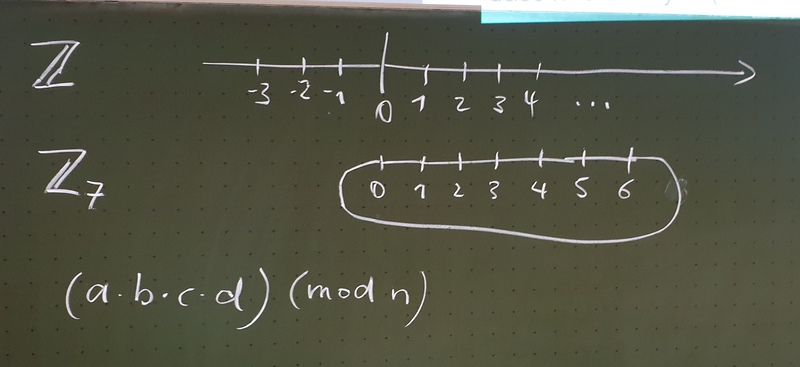 ℤ
-3 -2 -1 0 1 2 3 4 ...
ℤ₇
0 1 2 3 4 5 6
(a·b·c·d) (mod n)